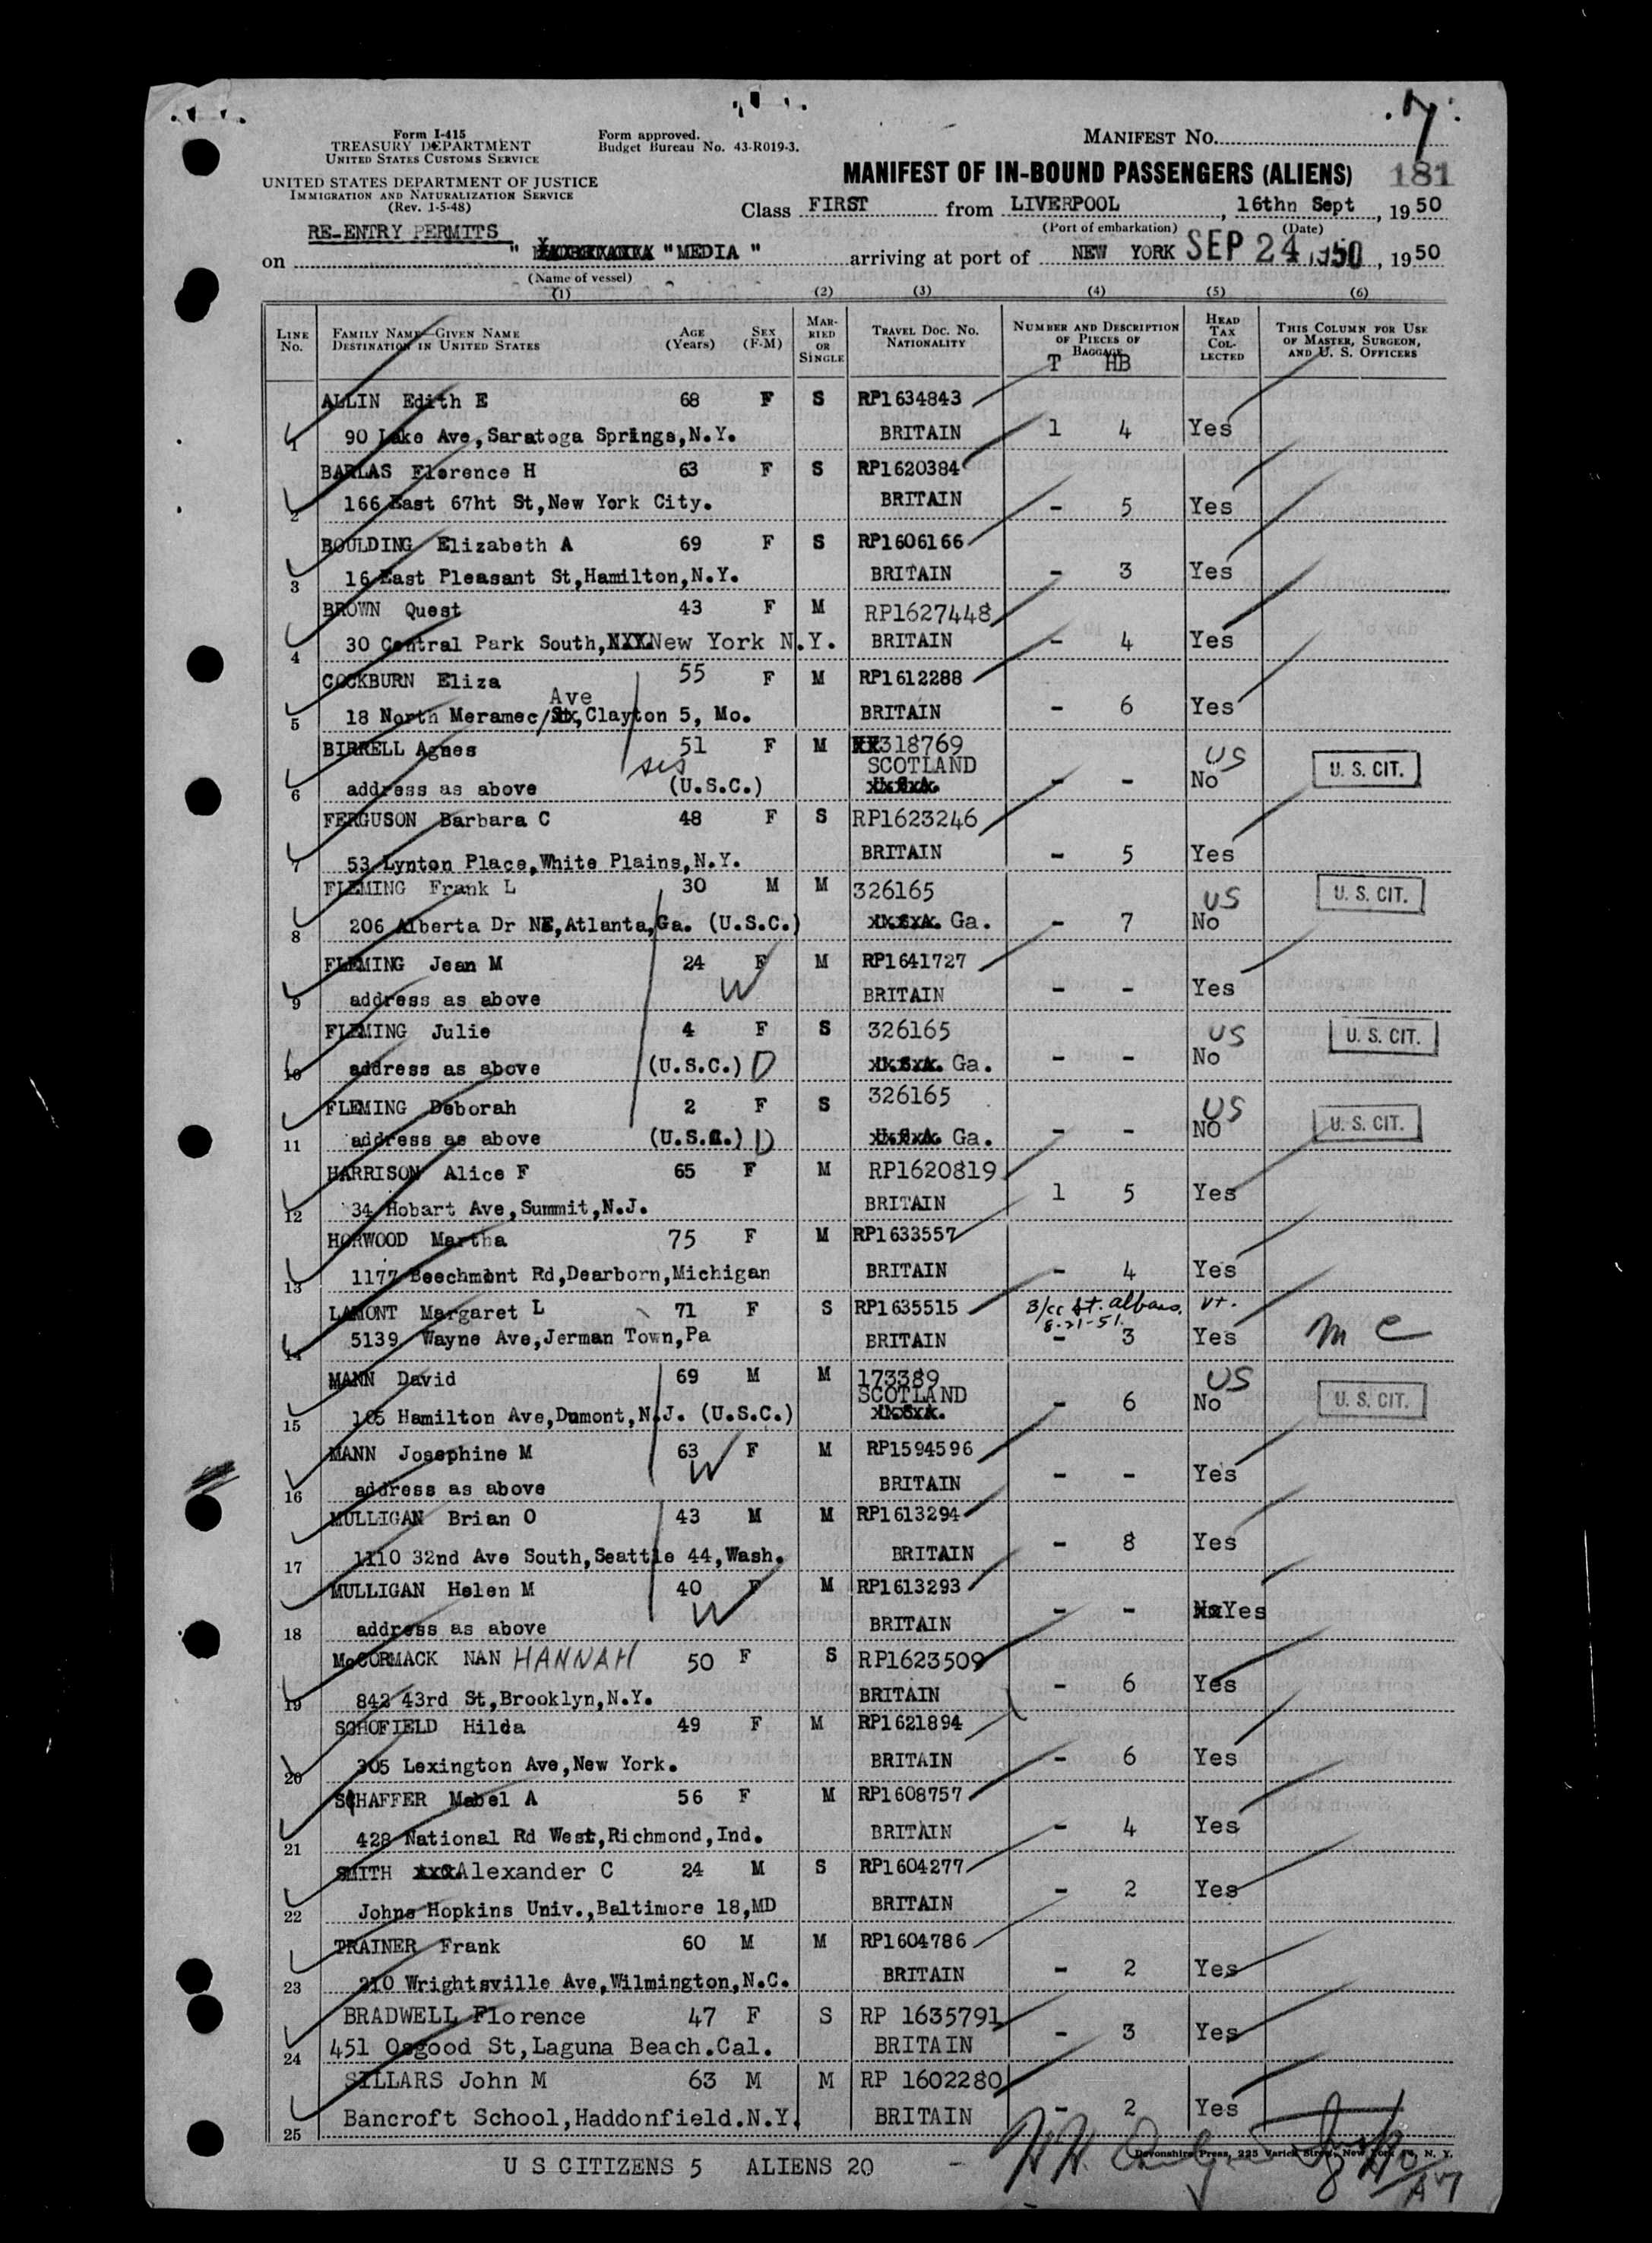 7
Form I-415
TREASURY DEPARTMENT
UNITED STATES CUSTOMS SERVICE
Form approved.
Budget Bureau No. 43-R019-3.
MANIFEST No.
UNITED STATES DEPARTMENT OF JUSTICE
IMMIGRATION AND NATURALIZATION SERVICE
(Rev. 1-5-48)
MANIFEST OF IN-BOUND PASSENGERS (ALIENS) 181
Class FIRST from LIVERPOOL, 16thn Sept, 1950
(Port of embarkation) (Date)
RE-ENTRY PERMITS
on " "MEDIA" arriving at port of NEW YORK SEP 24 1950, 1950
(Name of vessel)
(1) (2) (3) (4) (5) (6)
LINE No. FAMILY NAME—GIVEN NAME DESTINATION IN UNITED STATES AGE (Years) SEX (F-M) MARRIED OR SINGLE TRAVEL DOC. No. NATIONALITY NUMBER AND DESCRIPTION OF PIECES OF BAGGAGE HEAD TAX COLLECTED THIS COLUMN FOR USE OF MASTER, SURGEON, AND U. S. OFFICERS
T HB
ALLIN Edith E 68 F S RP1634843
1 90 Lake Ave,Saratoga Springs,N.Y. BRITAIN 1 4 Yes
BARLAS Florence H 63 F S RP1620384
2 166 East 67ht St,New York City. BRITAIN - 5 Yes
BOULDING Elizabeth A 69 F S RP1606166
3 16 East Pleasant St,Hamilton,N.Y. BRITAIN - 3 Yes
BROWN Quest 43 F M RP1627448
4 30 Central Park South,New York N.Y. BRITAIN - 4 Yes
COCKBURN Eliza 55 F M RP1612288
Ave
5 18 North Meramec/,Clayton 5, Mo. BRITAIN - 6 Yes
BIRRELL Agnes 51 F M 318769
sis SCOTLAND US U. S. CIT.
6 address as above (U.S.C.) - - No
FERGUSON Barbara C 48 F S RP1623246
7 53 Lynton Place,White Plains,N.Y. BRITAIN - 5 Yes
FLEMING Frank L 30 M M 326165 US U. S. CIT.
8 206 Alberta Dr NE,Atlanta,Ga. (U.S.C.) Ga. - 7 No
FLEMING Jean M 24 F M RP1641727
9 address as above W BRITAIN - - Yes
FLEMING Julie 4 F S 326165 US U. S. CIT.
10 address as above (U.S.C.) D Ga. - - No
FLEMING Deborah 2 F S 326165 US U. S. CIT.
11 address as above (U.S.C.) D Ga. - - NO
HARRISON Alice F 65 F M RP1620819
12 34 Hobart Ave,Summit,N.J. BRITAIN 1 5 Yes
HORWOOD Martha 75 F M RP1633557
13 1177 Beechmont Rd,Dearborn,Michigan BRITAIN - 4 Yes
LAMONT Margaret L 71 F S RP1635515 3/cc St. albans, vt.
8-21-51.
14 5139 Wayne Ave,Jerman Town,Pa BRITAIN - 3 Yes m c
MANN David 69 M M 173389 US
SCOTLAND U. S. CIT.
15 105 Hamilton Ave,Dumont,N.J. (U.S.C.) - 6 No
MANN Josephine M 63 F M RP1594596
16 address as above W BRITAIN - - Yes
MULLIGAN Brian O 43 M M RP1613294
17 1110 32nd Ave South,Seattle 44,Wash. BRITAIN - 8 Yes
MULLIGAN Helen M 40 F M RP1613293
18 address as above W BRITAIN - - Yes
McCORMACK NAN HANNAH 50 F S RP1623509
19 842 43rd St,Brooklyn,N.Y. BRITAIN - 6 Yes
SCHOFIELD Hilda 49 F M RP1621894
20 305 Lexington Ave,New York. BRITAIN - 6 Yes
SCHAFFER Mabel A 56 F M RP1608757
21 428 National Rd West,Richmond,Ind. BRITAIN - 4 Yes
SMITH Alexander C 24 M S RP1604277
22 Johns Hopkins Univ.,Baltimore 18,MD BRITAIN - 2 Yes
TRAINER Frank 60 M M RP1604786
23 210 Wrightsville Ave,Wilmington,N.C. BRITAIN - 2 Yes
BRADWELL Florence 47 F S RP 1635791
24 451 Osgood St,Laguna Beach.Cal. BRITAIN - 3 Yes
SILLARS John M 63 M M RP 1602280
25 Bancroft School,Haddonfield.N.Y. BRITAIN - 2 Yes
Devonshire Press, 225 Varick Street, New York 14, N. Y.
U S CITIZENS 5 ALIENS 20 -